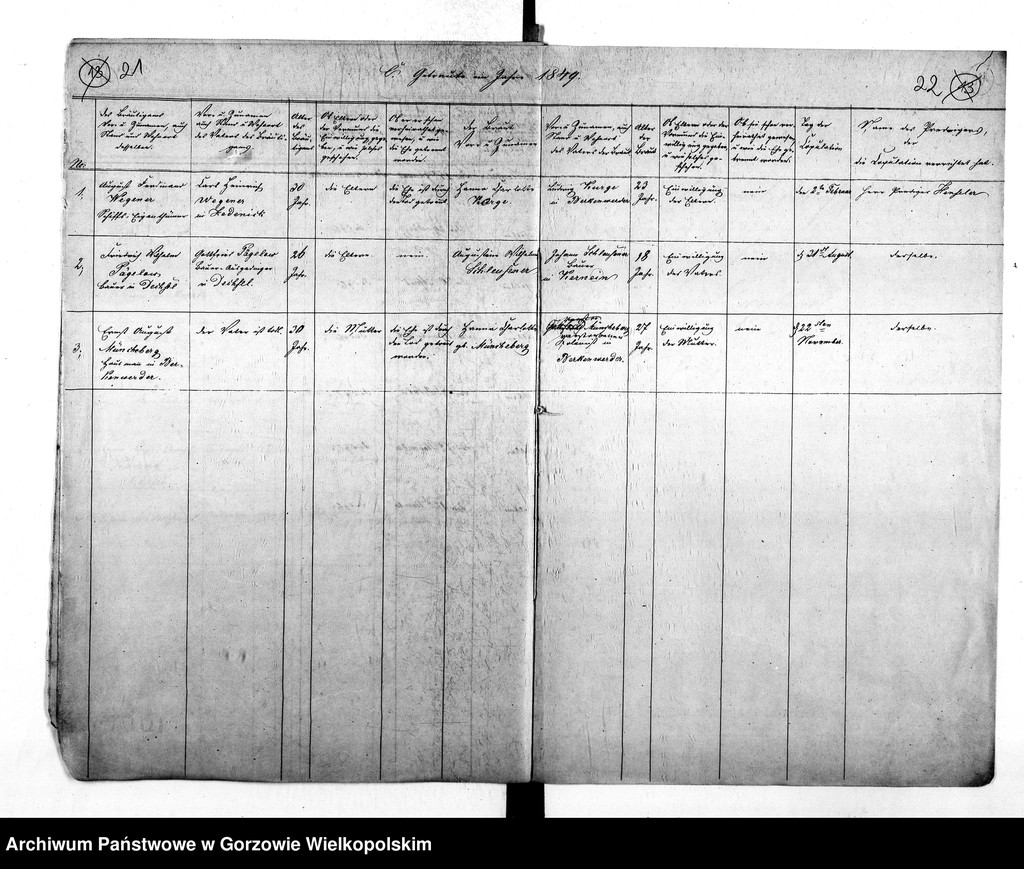 13 21
C. Getraute im Jahre 1849.
22 13
No
des Bräutigams
Vor- u Zunamen, auch
Stand und Wohnort
desselben.
Vor- u Zunamen
auch Stand u Wohnort
des Vaters des Bräuti-
gams.
Alter
des
Bräu-
tigams
Ob Eltern oder
der Vormund die
Einwilligung gege-
ben, u wie solches
geschehen.
Ob er schon
verheirathet ge-
wesen, u wie
die Ehe getrennt
worden.
der Braut
Vor- u Zunamen
Vor- u Zunamen, auch
Stand u Wohnort
des Vaters der Braut
Alter
der
Braut
Ob Eltern oder der
Vormund die Ein-
willigung gegeben
u wie solches ge-
schehen.
Ob sie schon ver-
heirathet gewesen
u wie die Ehe ge-
trennt worden.
Tag der
Copulation
Name des Predigers,
der
die Copulation verrichtet hat.
1,
August Ferdinand
Wegener
Schiffs-Eigenthümer
Karl Heinrich
Wegener
in
30
Jahr.
die Eltern
die Ehe ist durch
den Tod getrennt
Hanna Charlotte
Ludwig
in Berkenwerder
23
Jahr.
Einwilligung
der Eltern.
nein
den 2ten Februar
Herr Prediger
2,
Friedrich Wilhelm
Pägelow,
Bauer in
Gottfried Pägelow
Bauer-
in
26
Jahr.
die Eltern
nein.
Augustine Wilhelm.
Schleusener
Johann Schleusener
Bauer
in Kernein
18
Jahr.
Einwilligung
des Vaters.
nein
d 21ten August.
derselbe.
3,
Ernst August
Müncheberg
in Ber-
kenwerder.
der Vater ist todt.
30
Jahr.
die Mutter
die Ehe ist durch
den Tod getrennt
worden.
Hanna Charlotte
gb. Müncheberg
verstorbener
Kolonist in
Berkenwerder.
27
Jahr.
Einwilligung
der Mutter.
nein
d 22sten
November.
derselbe.
Archiwum Państwowe w Gorzowie Wielkopolskim